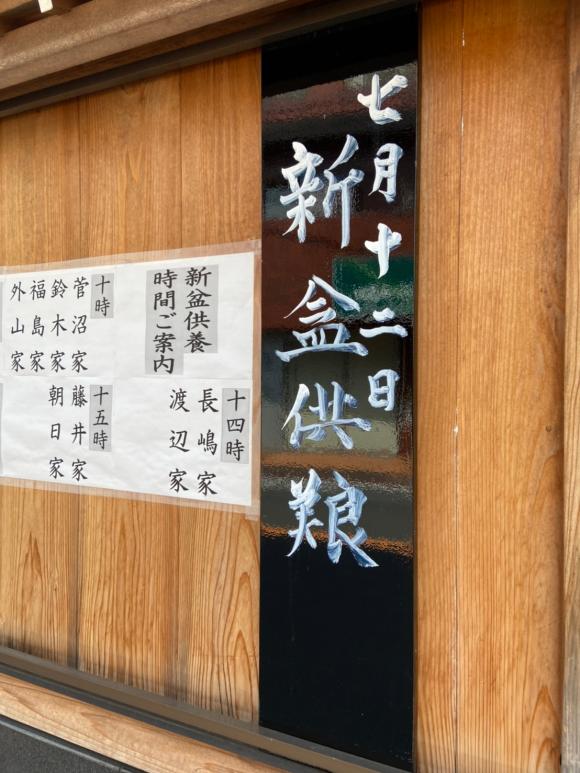 七月十二日
新盆供養
新盆供養
時間ご案内
十時
菅沼家
鈴木家
福島家
外山家
十四時
長嶋家
渡辺家
十五時
藤井家
朝日家